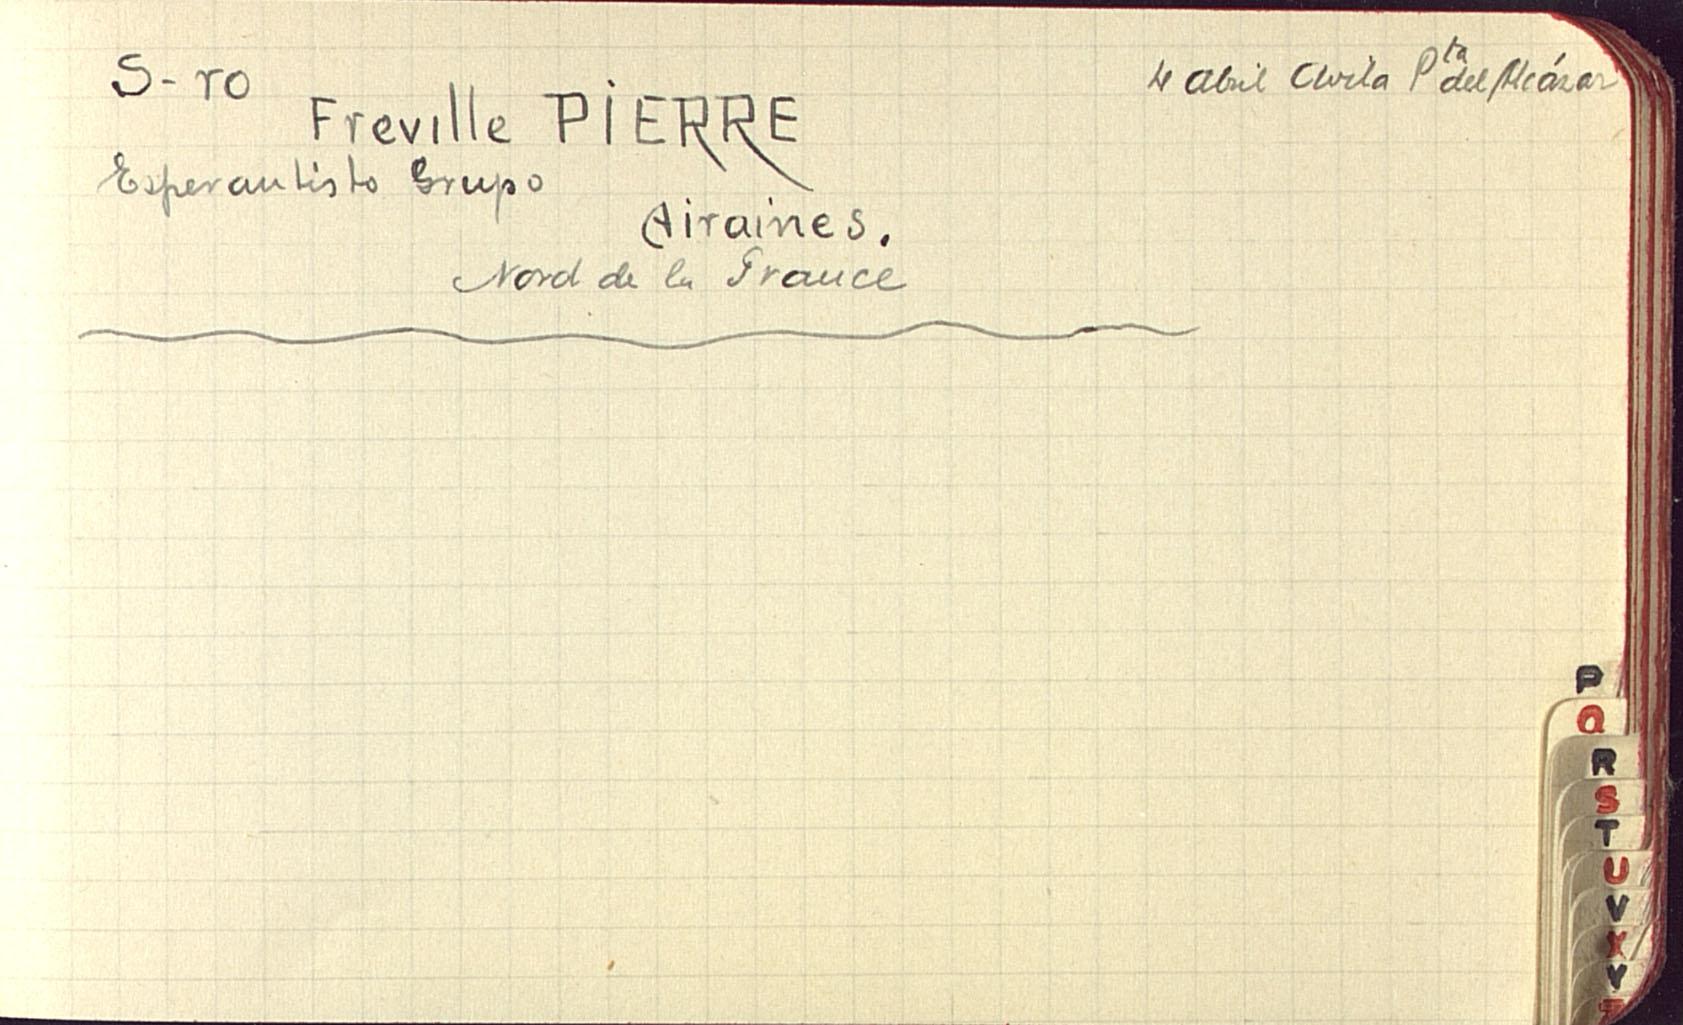 S-ro
4 Abril Avila Pta del Alcázar
Freville PIERRE
Esperantisto Grupo
Airaines.
Nord de la France
P
Q
R
S
T
U
V
X
Y